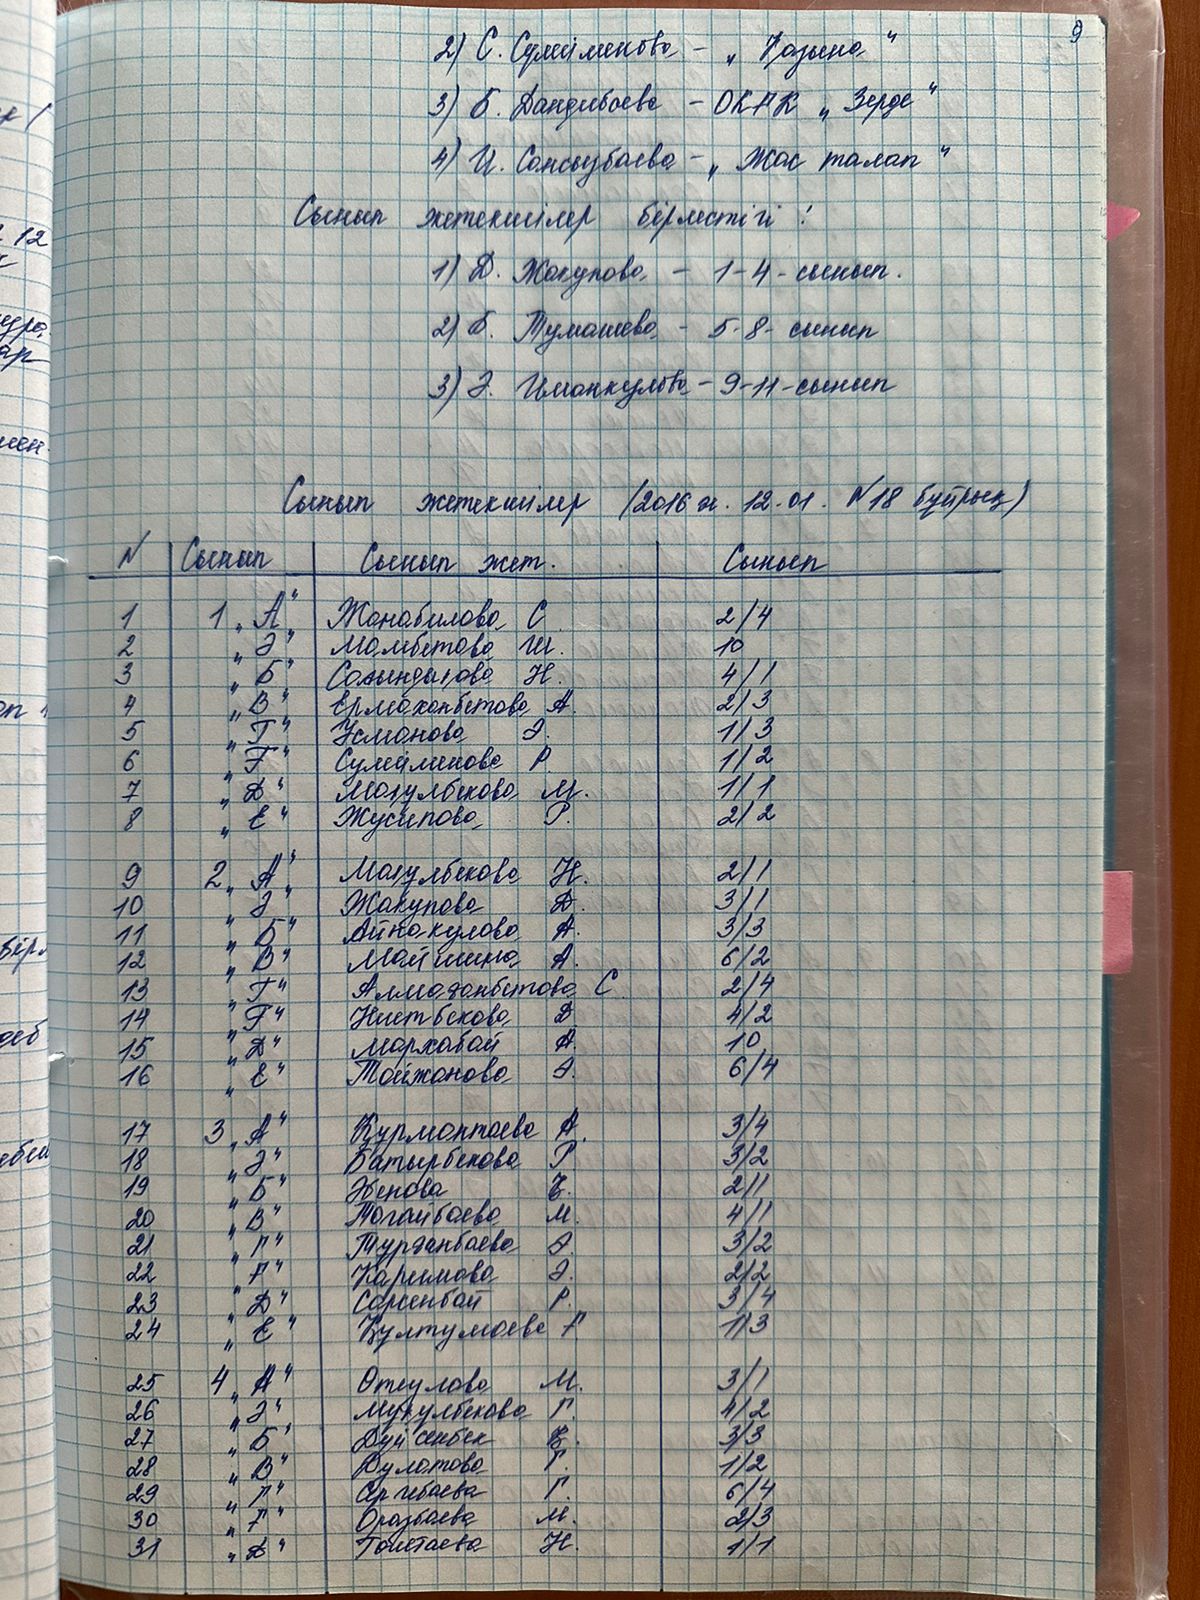 9
2) С. Сулейменова - „Қазына"
3) Б. Дандибаева - ОКПК „Зерде"
4) И. Сансызбаева - „Жас талап"
Сынып жетекшілер бірлестігі:
1) Д. Жакупова - 1-4-сынып.
2) Б. Тумашева - 5-8-сынып
3) Э. Иманкулова - 9-11-сынып
Сынып жетекшілер (2016 ж. 12.01. N18 бұйрық)
N Сынып Сынып жет. Сынып
1 1 „А" Жанабилова С. 2/4
2 „Ә" Мамбетова Ш. 10
3 „Б" Сағындықова Н. 4/1
4 „В" Ермаханбетова А. 2/3
5 „Г" Усманова Э. 1/3
6 „Ғ" Сулейменова Р. 1/2
7 „Д" Мағулбекова М. 1/1
8 „Е" Жусипова Р. 2/2
9 2 „А" Мағулбекова Н. 2/1
10 „Ә" Жакупова Д. 3/1
11 „Б" Айнакулова А. 3/3
12 „В" Майшина А. 6/2
13 „Г" Алмағанбетова С. 2/4
14 „Ғ" Ниетбекова Д 4/2
15 „Д" Мархабай А. 10
16 „Е" Тайжанова Э. 6/4
17 3 „А" Құрмантаева А. 3/4
18 „Ә" Батырбекова Р 3/2
19 „Б" Әбенова 2/1
20 „В" Тоғайбаева М. 4/1
21 „Г" Турғанбаева Э. 3/2
22 „Ғ" Каримова Э. 2/2
23 „Д" Сарсенбай Р. 3/4
24 „Е" Құлтумаева Г 1/3
25 4 „А" Отеулова М. 3/1
26 „Ә" Муқулбекова Г. 4/2
27 „Б" Дүйсенбек 3/3
28 „В" Дулатова Г. 1/2
29 „Г" Ергебаева Г. 6/4
30 „Ғ" Оразбаева М. 2/3
31 „Д" Тоистаева Н. 1/1